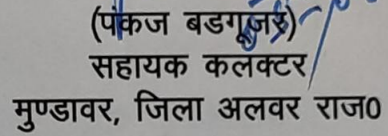 (पंकज बडगूजर)
सहायक कलक्टर
मुण्डावर, जिला अलवर राज0